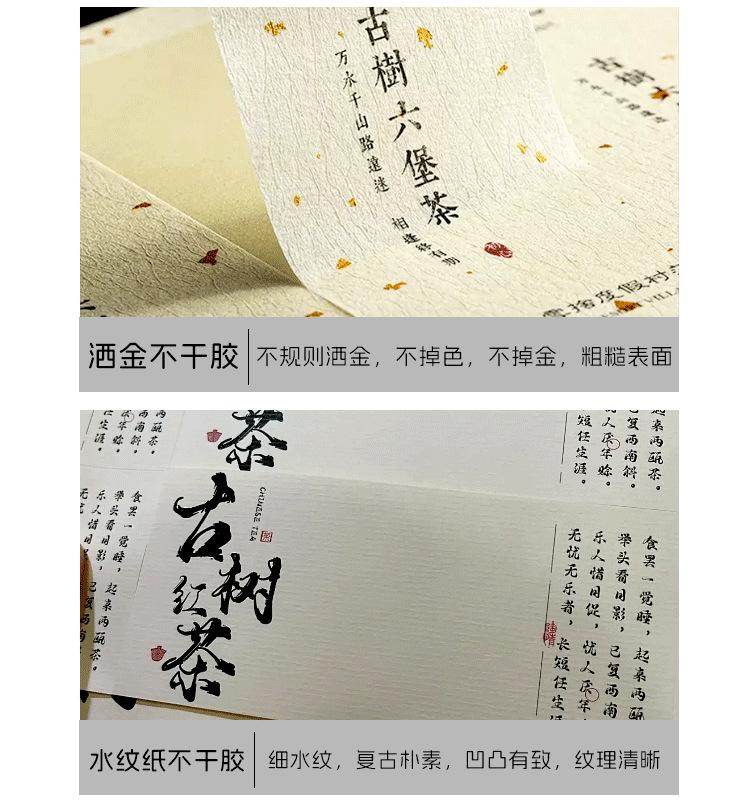 古樹六堡茶
万水千山路遠迷
相逢終有期
古樹
度假村
洒金不干胶
不规则洒金，不掉色，不掉金，粗糙表面
茶
起来两瓯茶。
已复西南斜。
厌年赊。
长短任生涯。
古树
红茶
CHINESE TEA
食罢一觉睡，起来两瓯
举头看日影，已复西南
乐人惜日促，忧人厌年
无忧无乐者，长短任生涯
水纹纸不干胶
细水纹，复古朴素，凹凸有致，纹理清晰